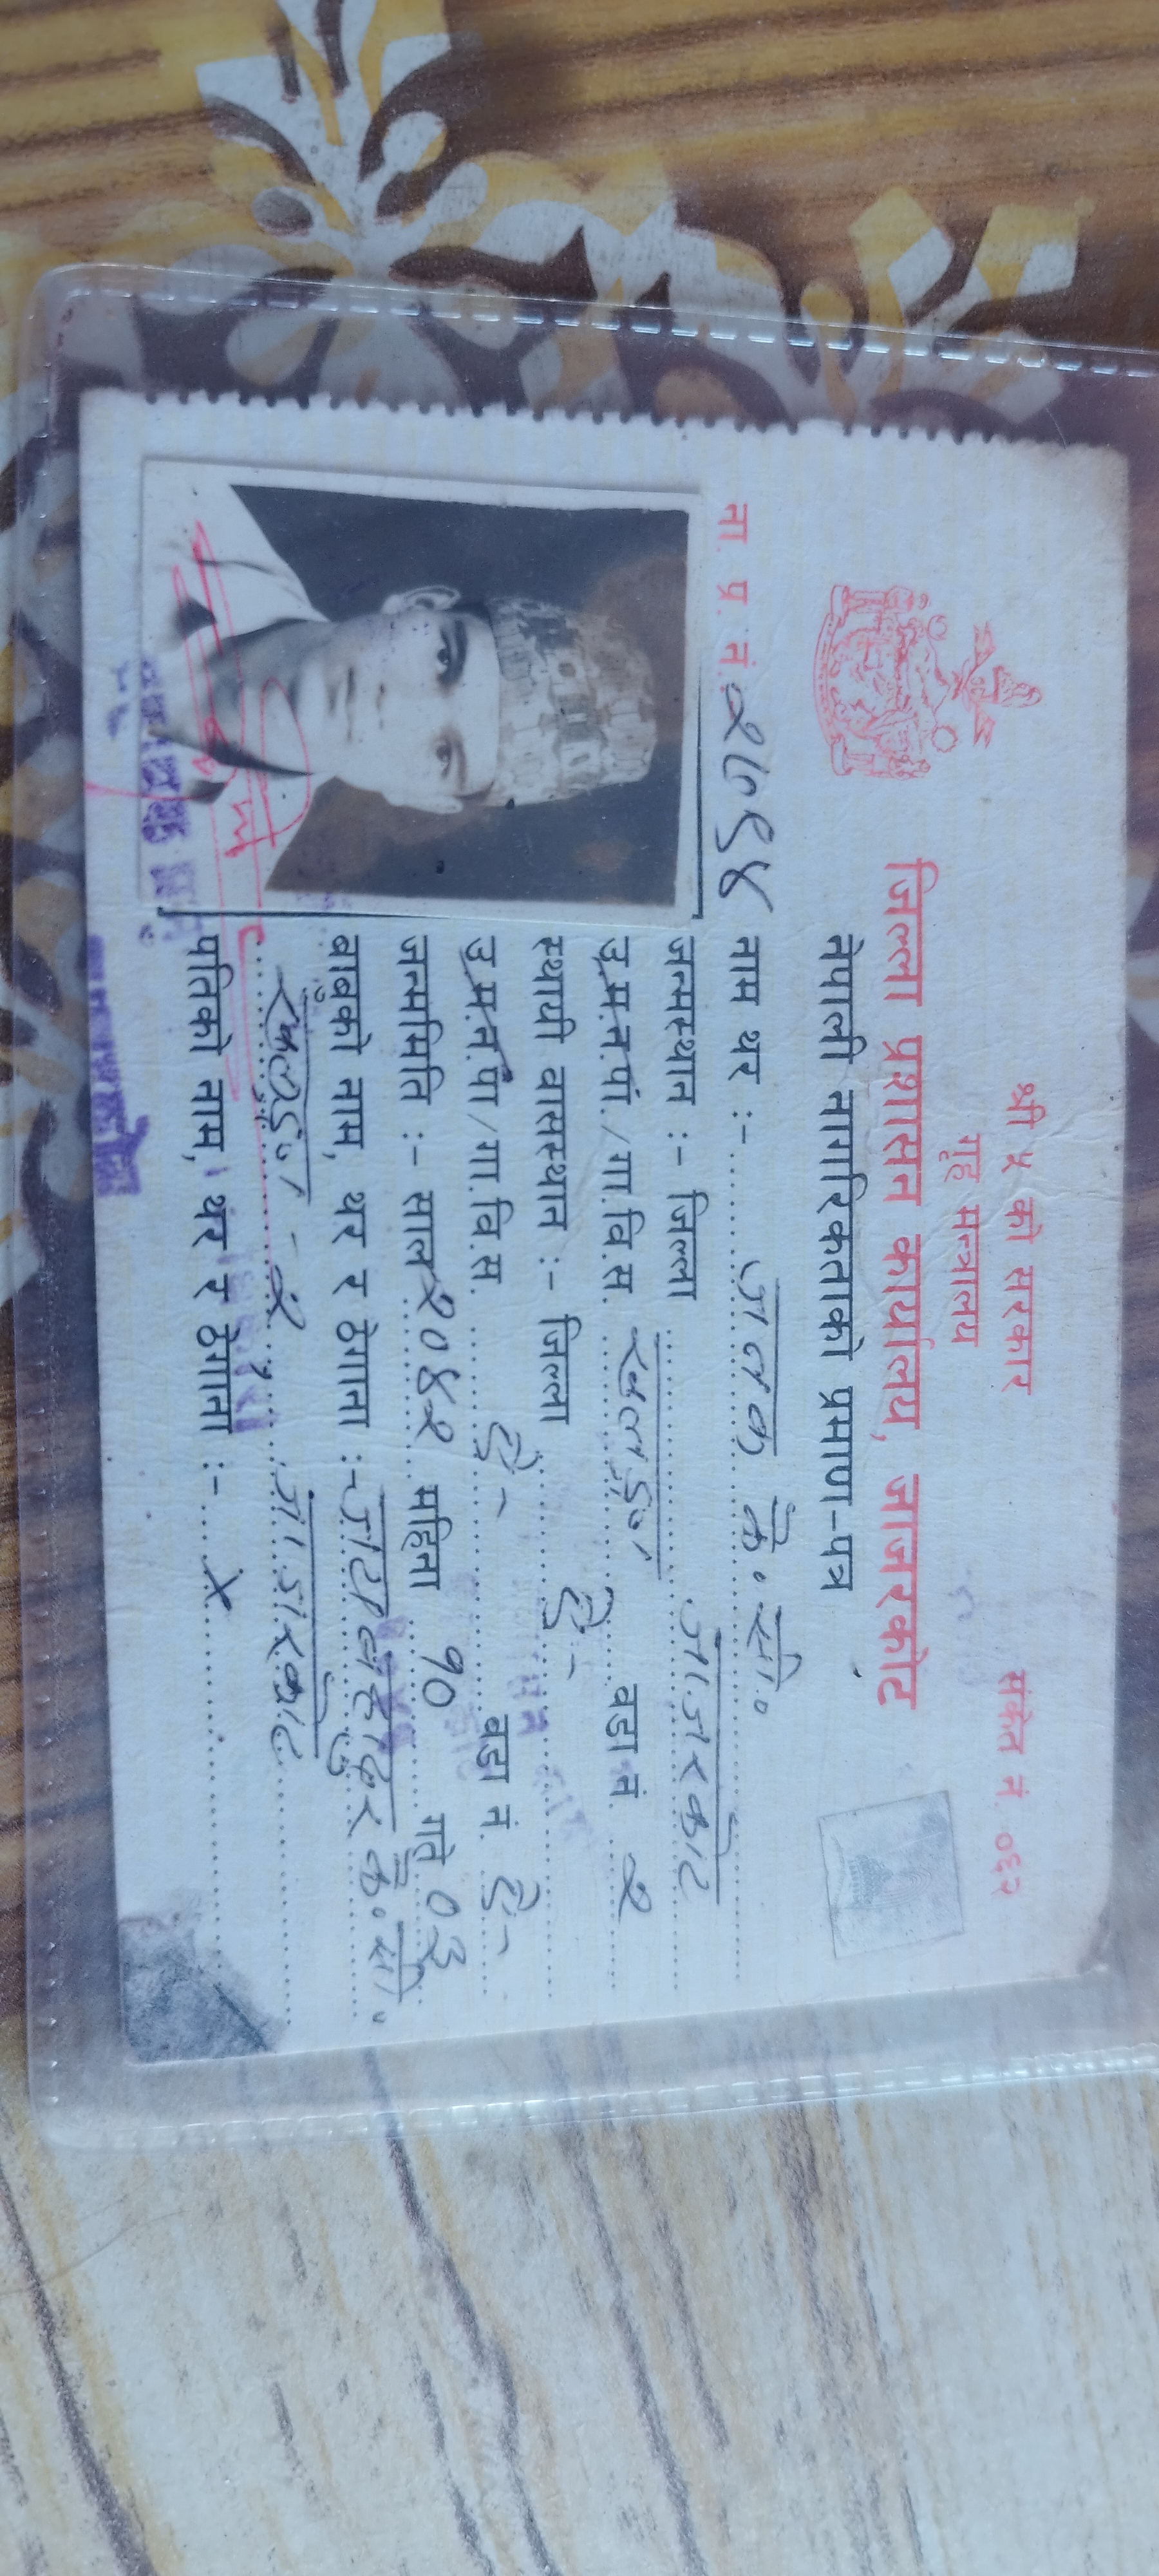 श्री ५ को सरकार
संकेत नं. ०६२
गृह मन्त्रालय
जिल्ला प्रशासन कार्यालय, जाजरकोट
नेपाली नागरिकताको प्रमाण-पत्र
ना. प्र. नं. २७९४
नाम थर :- जनक के. सी.
जन्मस्थान :- जिल्ला जाजरकोट
उ.म.न.पा./गा.वि.स. खलङ्गा वडा नं. २
स्थायी वासस्थान :- जिल्ला ऐ-
उ.म.न.पा/गा.वि.स. ऐ- वडा नं. ऐ-
जन्ममिति :- साल २०४२ महिना १० गते ०३
बाबुको नाम, थर र ठेगाना :- के. सी.
खलङ्गा - २, जाजरकोट
पतिको नाम, थर र ठेगाना :- x